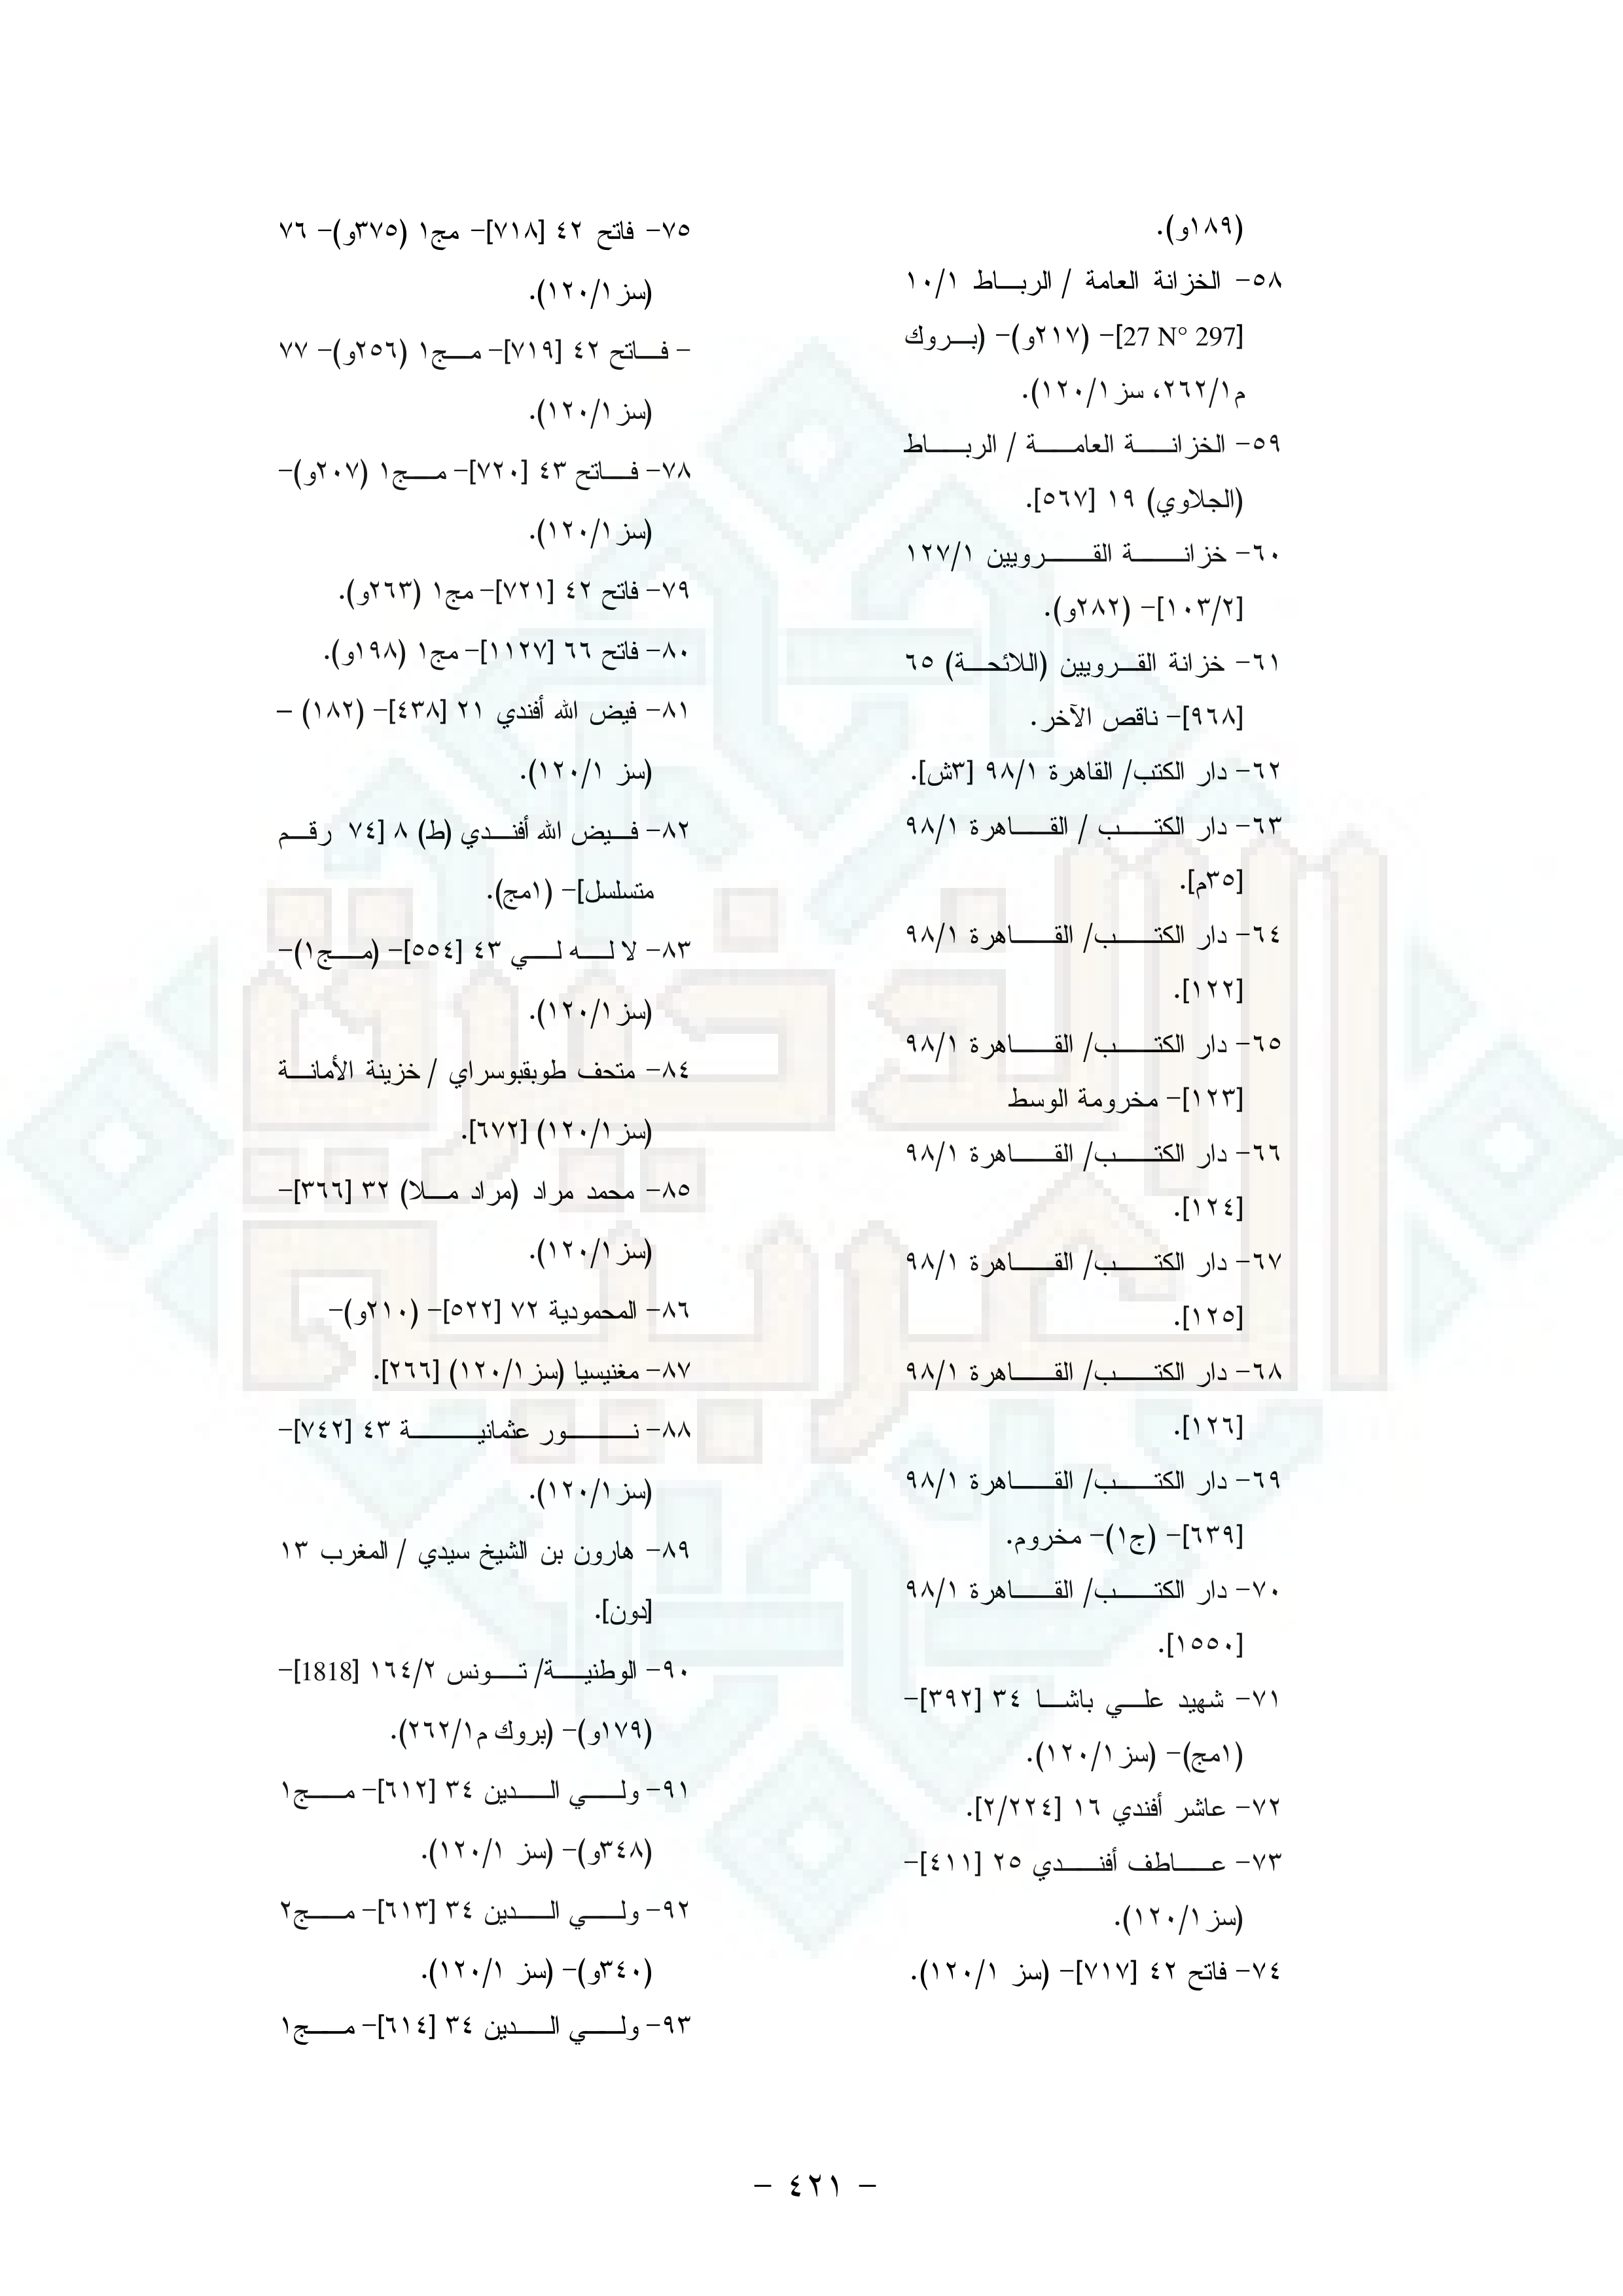 (١٨٩و).
٥٨- الخزانة العامة / الرباط ١٠/١
[27 N° 297]- (٢١٧و)- (بروك
م٢٦٢/١، سز١٢٠/١).
٥٩- الخزانة العامة / الرباط
(الجلاوي) ١٩ [٥٦٧].
٦٠- خزانة القرويين ١٢٧/١
[١٠٣/٢]- (٢٨٢و).
٦١- خزانة القرويين (اللائحة) ٦٥
[٩٦٨]- ناقص الآخر.
٦٢- دار الكتب/ القاهرة ٩٨/١ [٣ش].
٦٣- دار الكتب / القاهرة ٩٨/١
[٣٥م].
٦٤- دار الكتب/ القاهرة ٩٨/١
[١٢٢].
٦٥- دار الكتب/ القاهرة ٩٨/١
[١٢٣]- مخرومة الوسط
٦٦- دار الكتب/ القاهرة ٩٨/١
[١٢٤].
٦٧- دار الكتب/ القاهرة ٩٨/١
[١٢٥].
٦٨- دار الكتب/ القاهرة ٩٨/١
[١٢٦].
٦٩- دار الكتب/ القاهرة ٩٨/١
[٦٣٩]- (ج١)- مخروم.
٧٠- دار الكتب/ القاهرة ٩٨/١
[١٥٥٠].
٧١- شهيد علي باشا ٣٤ [٣٩٢]-
(١مج)- (سز١٢٠/١).
٧٢- عاشر أفندي ١٦ [٢/٢٢٤].
٧٣- عاطف أفندي ٢٥ [٤١١]-
(سز١٢٠/١).
٧٤- فاتح ٤٢ [٧١٧]- (سز ١٢٠/١).
٧٥- فاتح ٤٢ [٧١٨]- مج١ (٣٧٥و)- ٧٦
(سز١٢٠/١).
- فاتح ٤٢ [٧١٩]- مج١ (٢٥٦و)- ٧٧
(سز١٢٠/١).
٧٨- فاتح ٤٣ [٧٢٠]- مج١ (٢٠٧و)-
(سز١٢٠/١).
٧٩- فاتح ٤٢ [٧٢١]- مج١ (٢٦٣و).
٨٠- فاتح ٦٦ [١١٢٧]- مج١ (١٩٨و).
٨١- فيض الله أفندي ٢١ [٤٣٨]- (١٨٢) –
(سز ١٢٠/١).
٨٢- فيض الله أفندي (ط) ٨ [٧٤ رقم
متسلسل]- (١مج).
٨٣- لا له لي ٤٣ [٥٥٤]- (مج١)-
(سز١٢٠/١).
٨٤- متحف طوبقبوسراي / خزينة الأمانة
(سز١٢٠/١) [٦٧٢].
٨٥- محمد مراد (مراد ملا) ٣٢ [٣٦٦]-
(سز١٢٠/١).
٨٦- المحمودية ٧٢ [٥٢٢]- (٢١٠و)-
٨٧- مغنيسيا (سز١٢٠/١) [٢٦٦].
٨٨- نور عثمانية ٤٣ [٧٤٢]-
(سز١٢٠/١).
٨٩- هارون بن الشيخ سيدي / المغرب ١٣
[دون].
٩٠- الوطنية/ تونس ١٦٤/٢ [1818]-
(١٧٩و)- (بروك م٢٦٢/١).
٩١- ولي الدين ٣٤ [٦١٢]- مج١
(٣٤٨و)- (سز ١٢٠/١).
٩٢- ولي الدين ٣٤ [٦١٣]- مج٢
(٣٤٠و)- (سز ١٢٠/١).
٩٣- ولي الدين ٣٤ [٦١٤]- مج١
- ٤٢١ -
الذخيرة
العربية